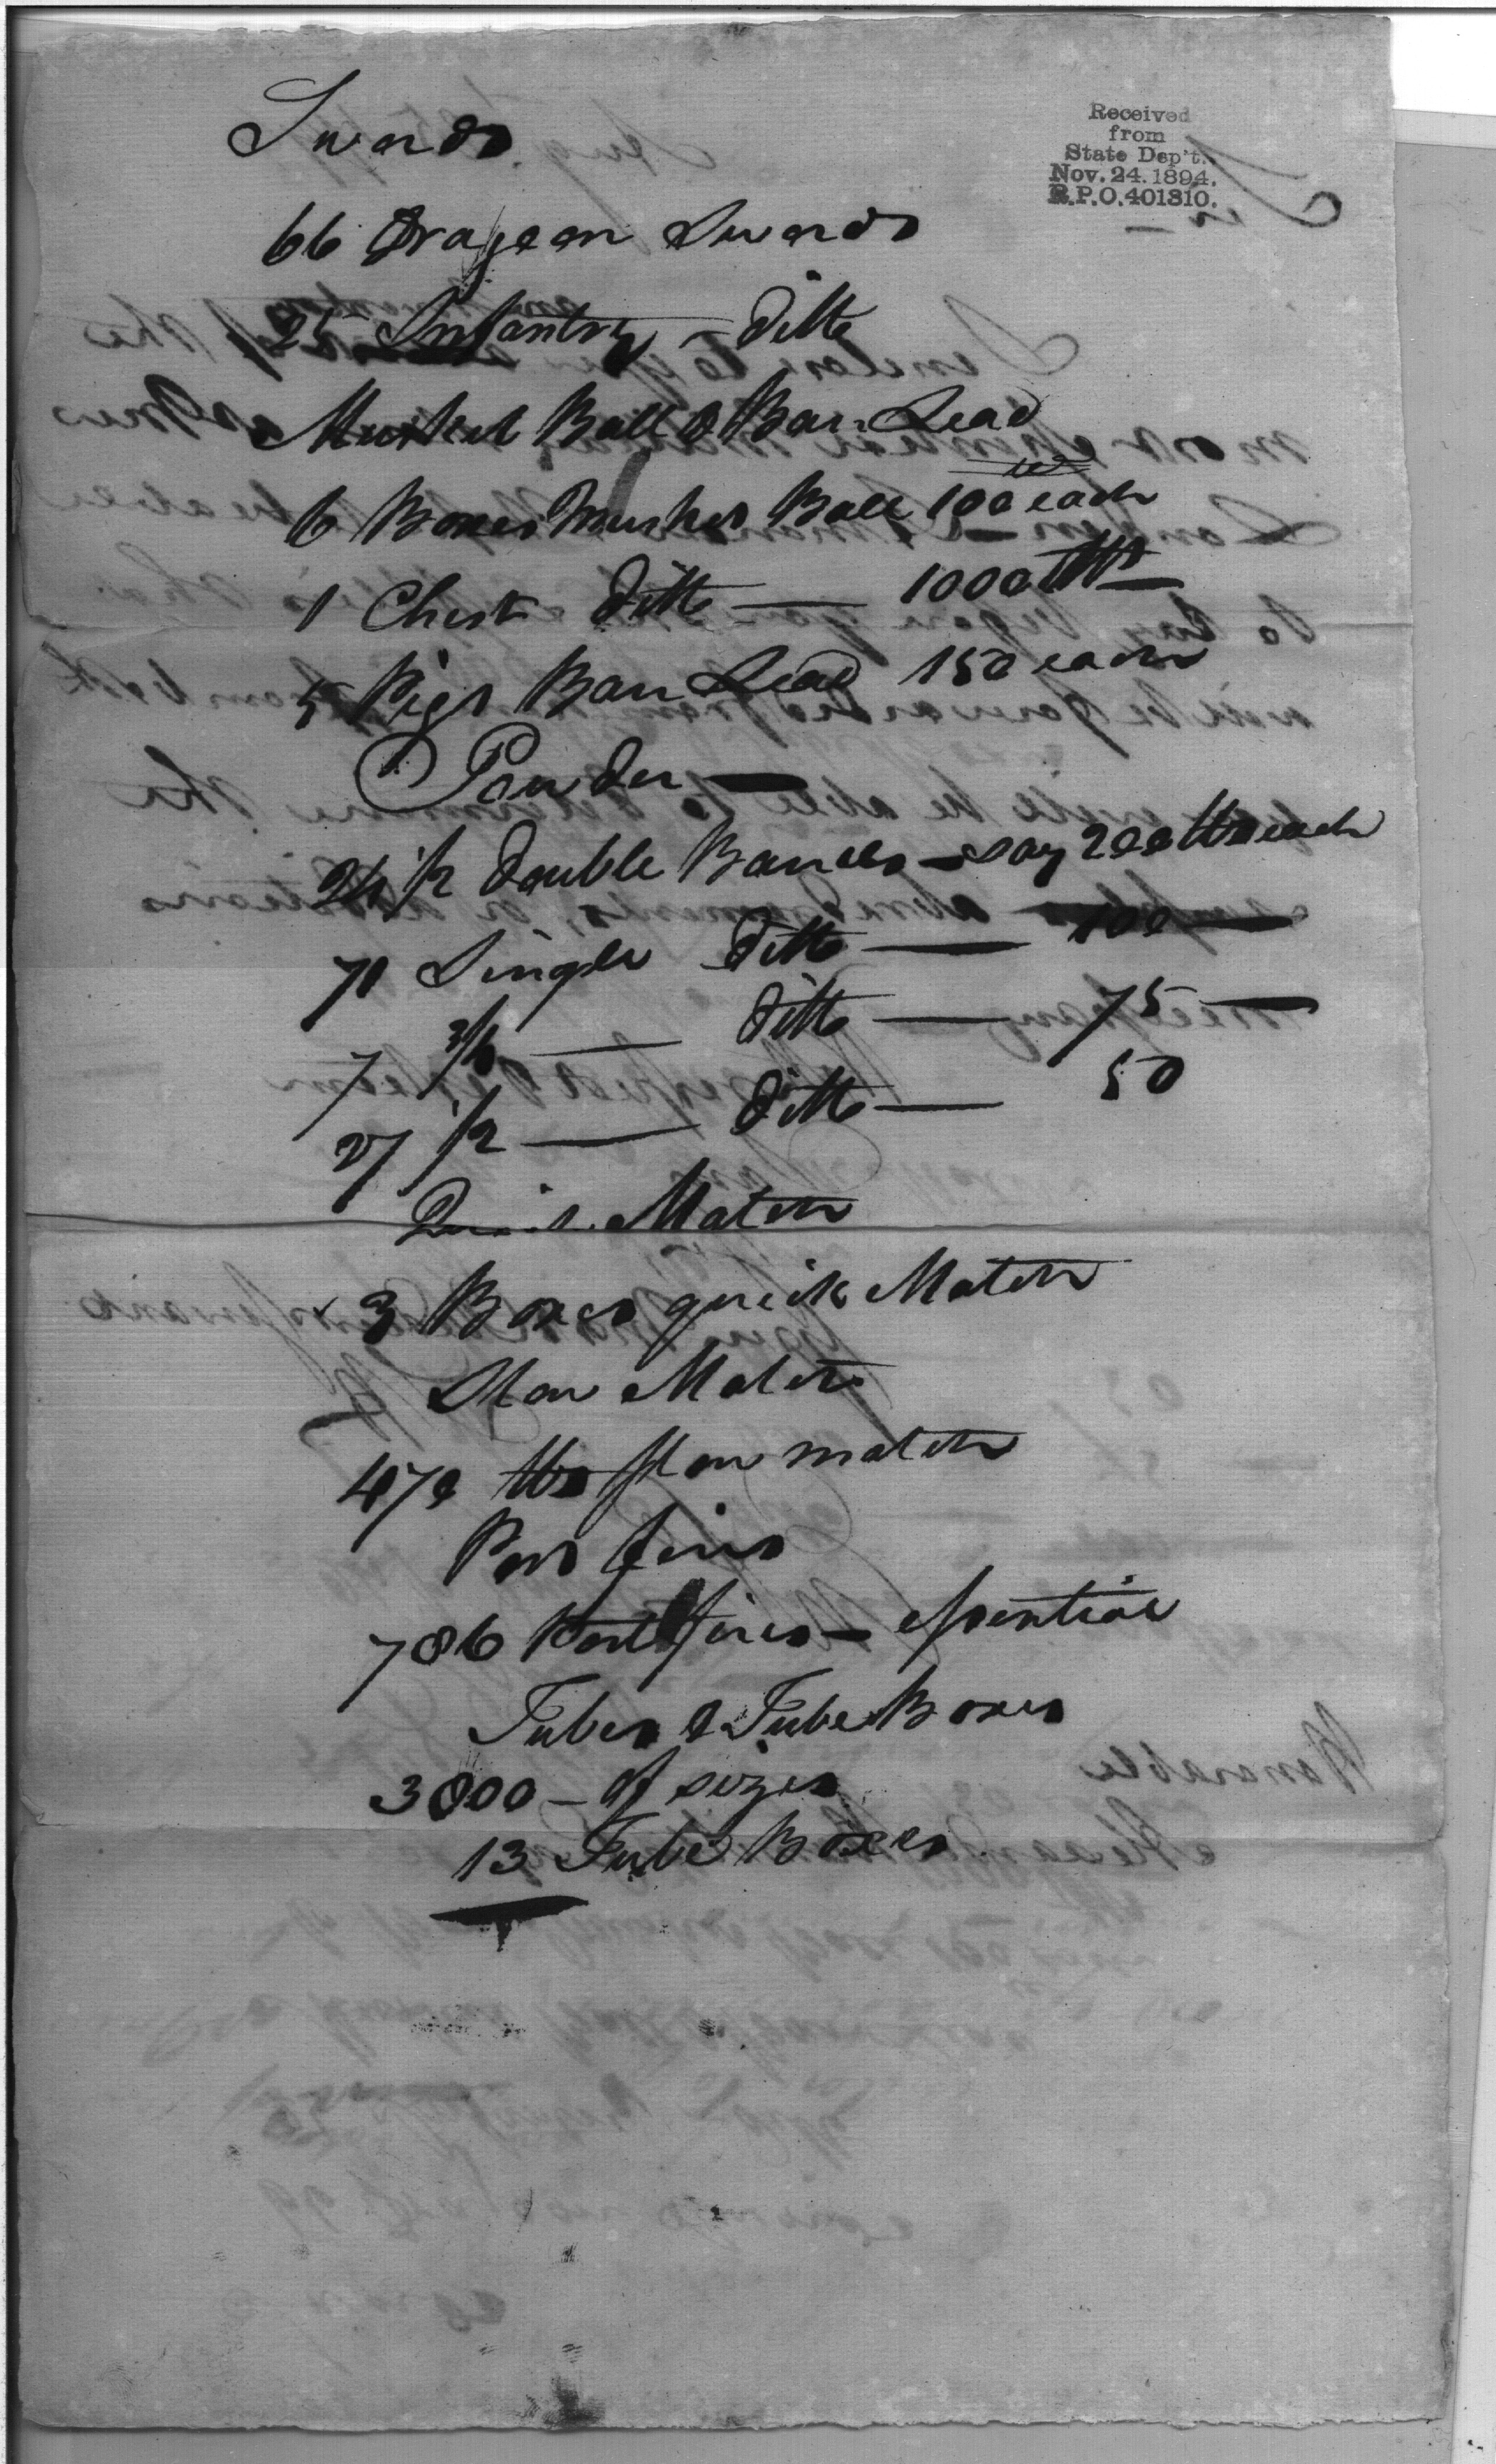 Received
from
State Dep't.
Nov. 24. 1894.
R.P.O. 401310.
Swords
66 Dragoon Swords
25 Infantry - ditto
Musket Ball & Bar Lead
6 Boxes Musket Ball 100 each
1 Chest ditto — 1000 lbs
5 Pigs Bar Lead 150 each
Powder —
1/2 double Barrels — say 200 lbs each
71 Single ditto — 100 —
7 3/4 — ditto — 75 —
27 1/2 — ditto — 50
Quick Match
3 Boxes quick Match
Slow Match
470 lbs slow match
Port fires
786 Port fires — essential
Tubes & Tube Boxes
3800 — of sizes
13 Tube Boxes